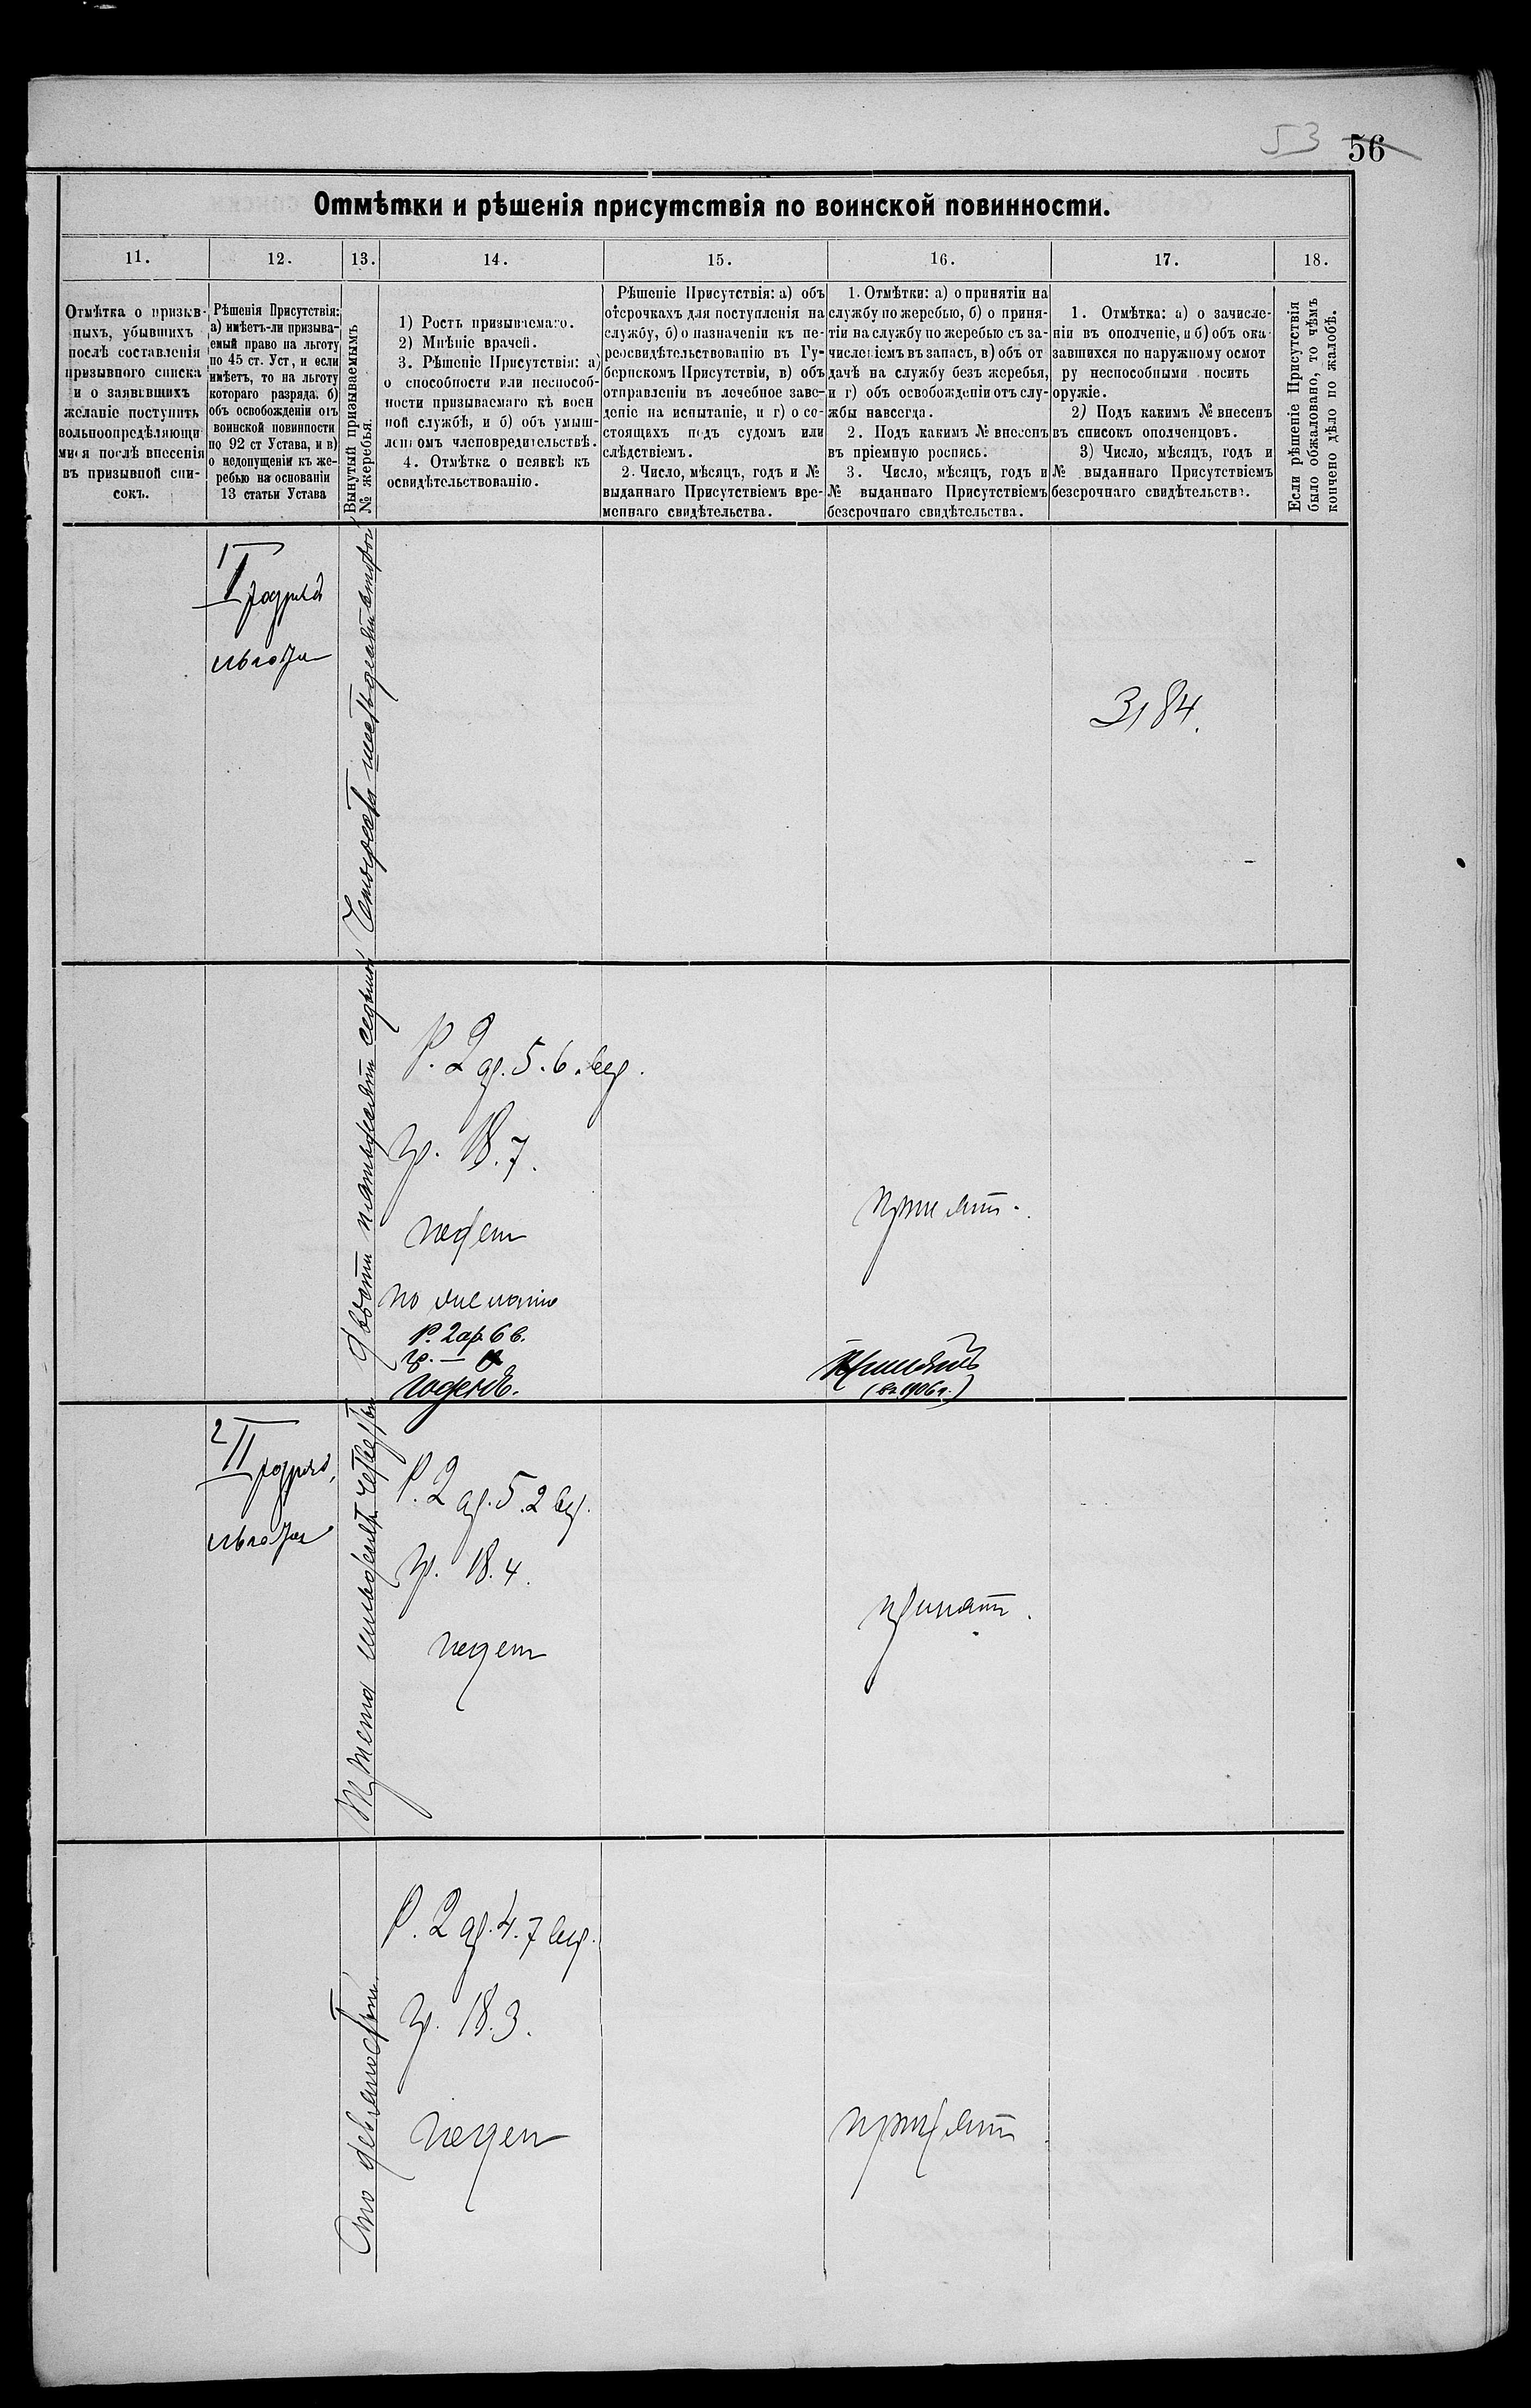 53 56
Отмѣтки и рѣшенія присутствія по воинской повинности.
11. 12. 13. 14. 15. 16. 17. 18.
Отмѣтка о призыв-
ныхъ, убывшихъ
послѣ составленія
призывного списка
и о заявившихъ
желаніе поступить
вольноопредѣляющи
мися послѣ внесенія
въ призывной спи-
сокъ.
Рѣшенія Присутствія:
а) имѣетъ-ли призыва-
емый право на льготу
по 45 ст. Уст, и если
имѣетъ, то на льготу
котораго разряда, б)
объ освобожденіи отъ
воинской повинности
по 92 ст Устава, и в)
о недопущеніи къ же-
ребью на основаніи
13 статьи Устава
Вынутый призываемымъ
№ жеребья.
1) Ростъ призываемаго.
2) Мнѣніе врачей.
3. Рѣшеніе Присутствія: а)
о способности или неспособ-
ности призываемаго къ воен
ной службѣ, и б) объ умыш-
ленномъ членовредительствѣ.
4. Отмѣтка о неявкѣ къ
освидѣтельствованію.
Рѣшеніе Присутствія: а) объ
отсрочкахъ для поступленія на
службу, б) о назначеніи къ пе-
реосвидѣтельствованію въ Гу-
бернскомъ Присутствіи, в) объ
отправленіи въ лечебное заве-
деніе на испытаніе, и г) о со-
стоящихъ подъ судомъ или
слѣдствіемъ.
2. Число, мѣсяцъ, годъ и №
выданнаго Присутствіемъ вре-
меннаго свидѣтельства.
1. Отмѣтки: а) о принятіи на
службу по жеребью, б) о приня-
тіи на службу по жеребью съ за-
численіемъ въ запасъ, в) объ от
дачѣ на службу безъ жеребья,
и г) объ освобожденіи отъ слу-
жбы навсегда.
2. Подъ какимъ № внесенъ
въ пріемную роспись.
3. Число, мѣсяцъ, годъ и
№ выданнаго Присутствіемъ
безсрочнаго свидѣтельства.
1. Отмѣтка: а) о зачисле-
ніи въ ополченіе, и б) объ ока
завшихся по наружному осмот
ру неспособными носить
оружіе.
2) Подъ какимъ № внесенъ
въ списокъ ополченцовъ.
3) Число, мѣсяцъ, годъ и
№ выданнаго Присутствіемъ
безсрочнаго свидѣтельства.
Если рѣшеніе Присутствія
было обжаловано, то чѣмъ
кончено дѣло по жалобѣ.
1
I разряда
льгота
Четыреста шестьдесятъ второй
3184.
Двѣсти пятьдесятъ седьмой
Р. 2 ар. 5.6. вер.
гр. 18.7.
годен
по
Р. 2 ар. 6 в.
гр. —
Годенъ.
принят.
Принятъ
(въ 1906 г.)
2
II разряд.
льгота
Триста четвертый
Р. 2 ар. 5.2 вер.
гр. 18.4.
годен
принят.
Сто девяностый
Р. 2 ар. 4.7 вер.
гр. 18.3.
годен
принят